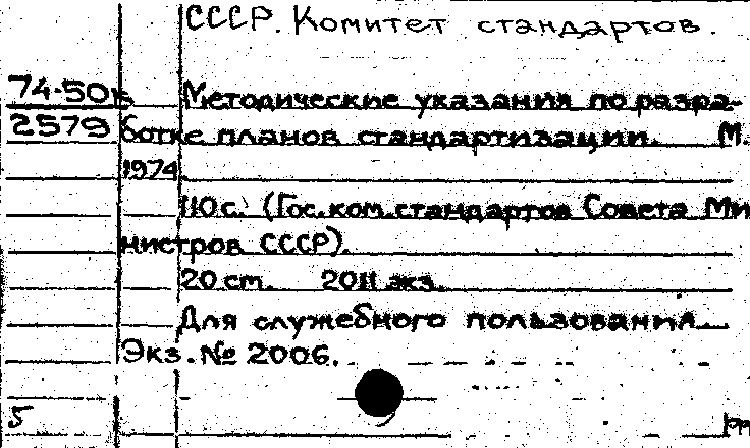 СССР. Комитет стандартов.
74-50к Методические указания по разра-
2579 ботке планов стандартизации. М.
1974.
110 с. (Гос. ком. стандартов Совета Ми
нистров СССР).
20 см. 2011 экз.
Для служебного пользования.
Экз. № 2006.
5